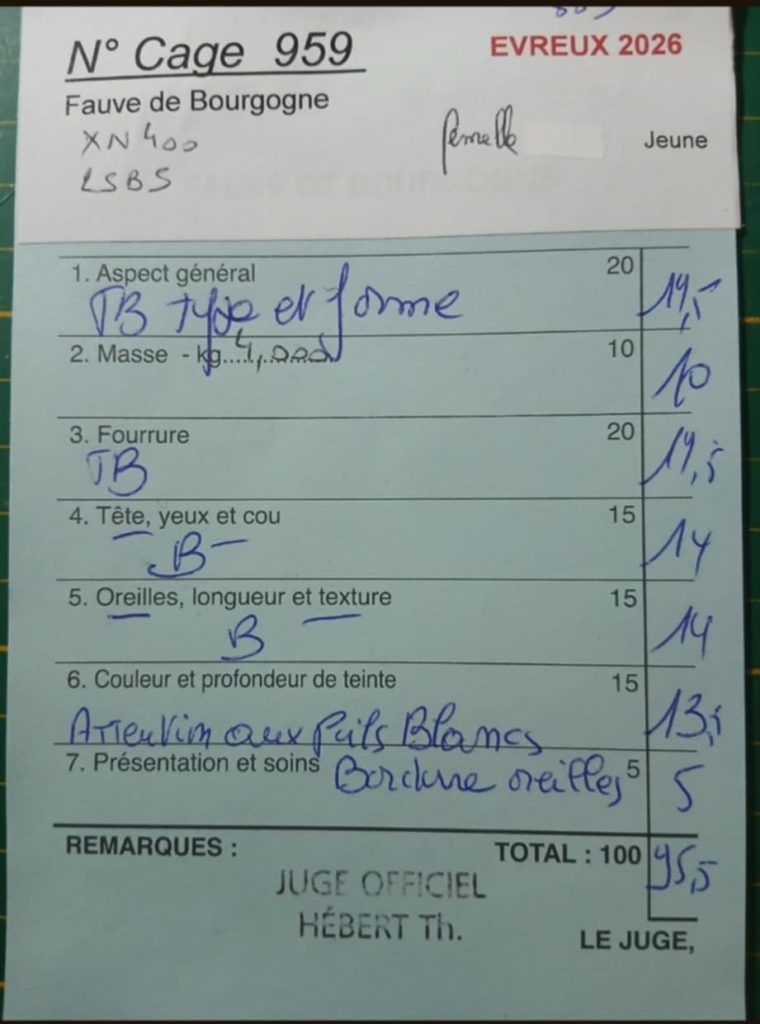 N° Cage 959
EVREUX 2026
Fauve de Bourgogne
XN400
femelle
Jeune
LSBS
1. Aspect général 20 19,5
TB type et forme
2. Masse - kg....4,000 10 10
3. Fourrure 20 19,5
TB
4. Tête, yeux et cou 15 14
B
5. Oreilles, longueur et texture 15 14
B
6. Couleur et profondeur de teinte 15 13,5
Attention aux poils Blancs
7. Présentation et soins 5 5
Bordure oreilles
REMARQUES : TOTAL : 100 95,5
JUGE OFFICIEL
HÉBERT Th.
LE JUGE,